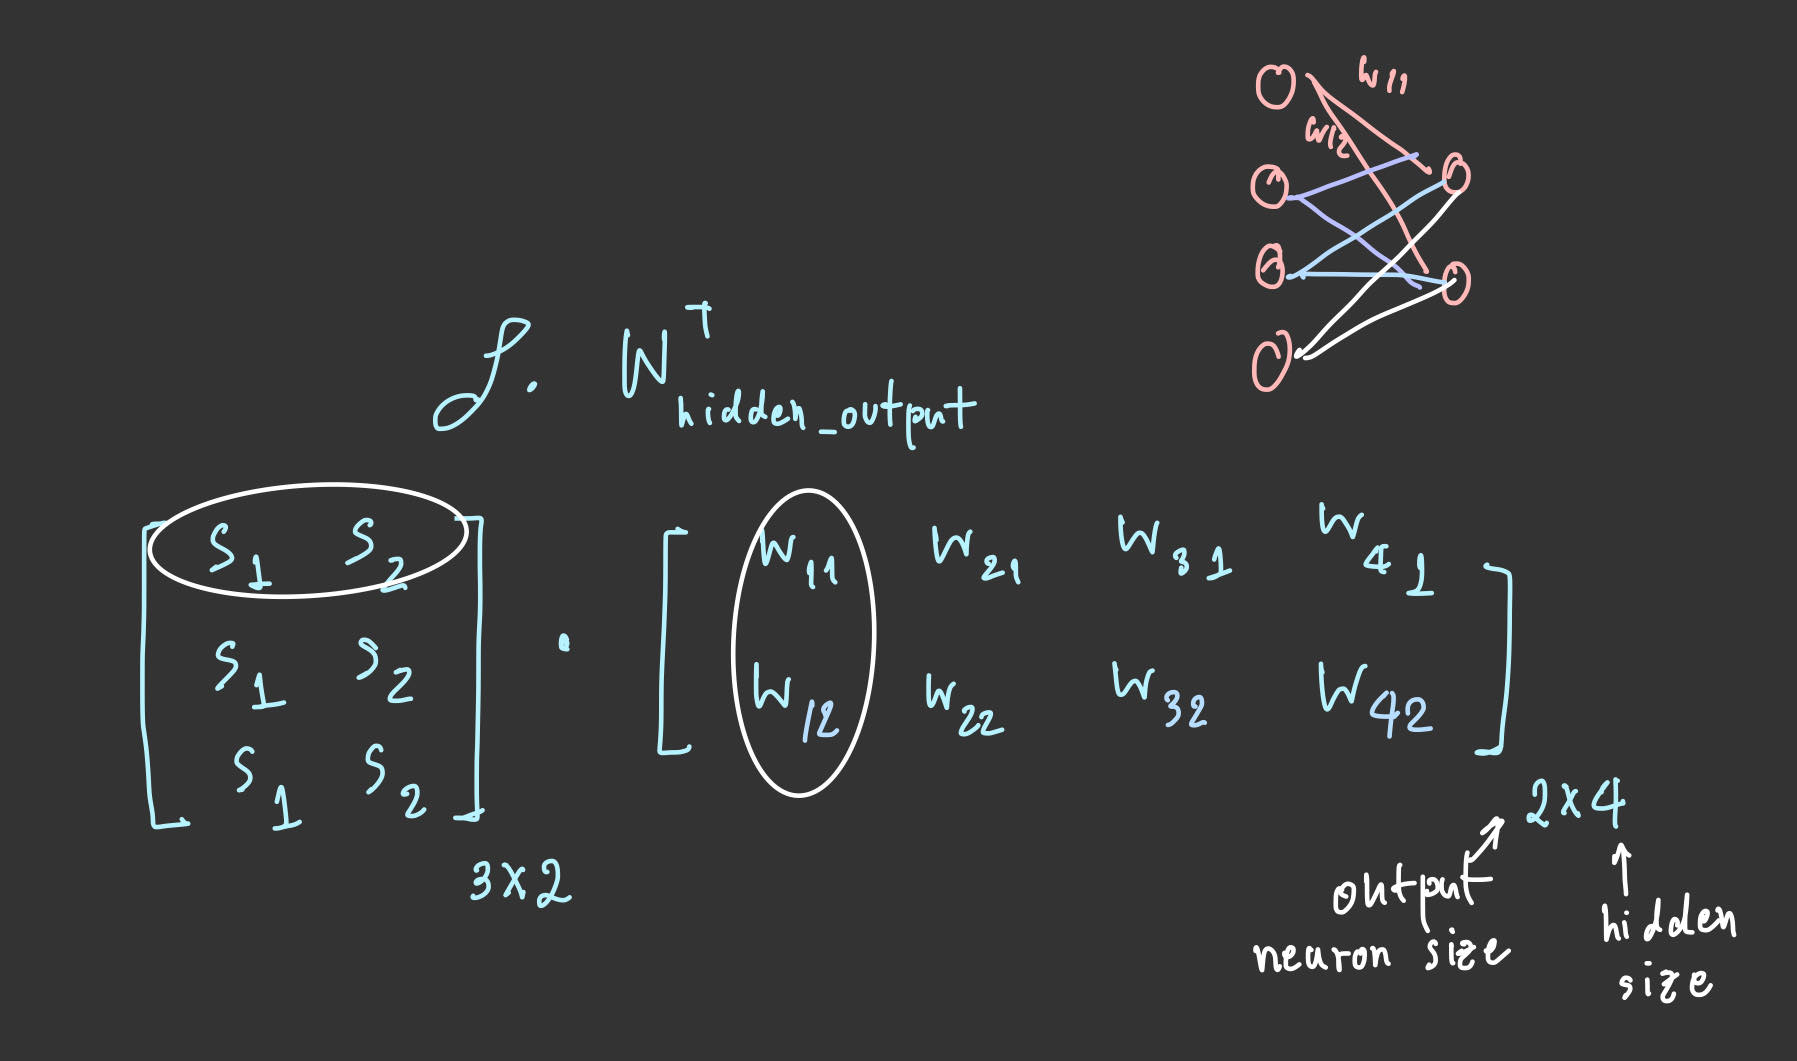 W11
W12
δ. W^T hidden_output
S1 S2
S1 S2
S1 S2
3x2
.
W11 W21 W31 W41
W12 W22 W32 W42
2x4
output
neuron size
hidden
size